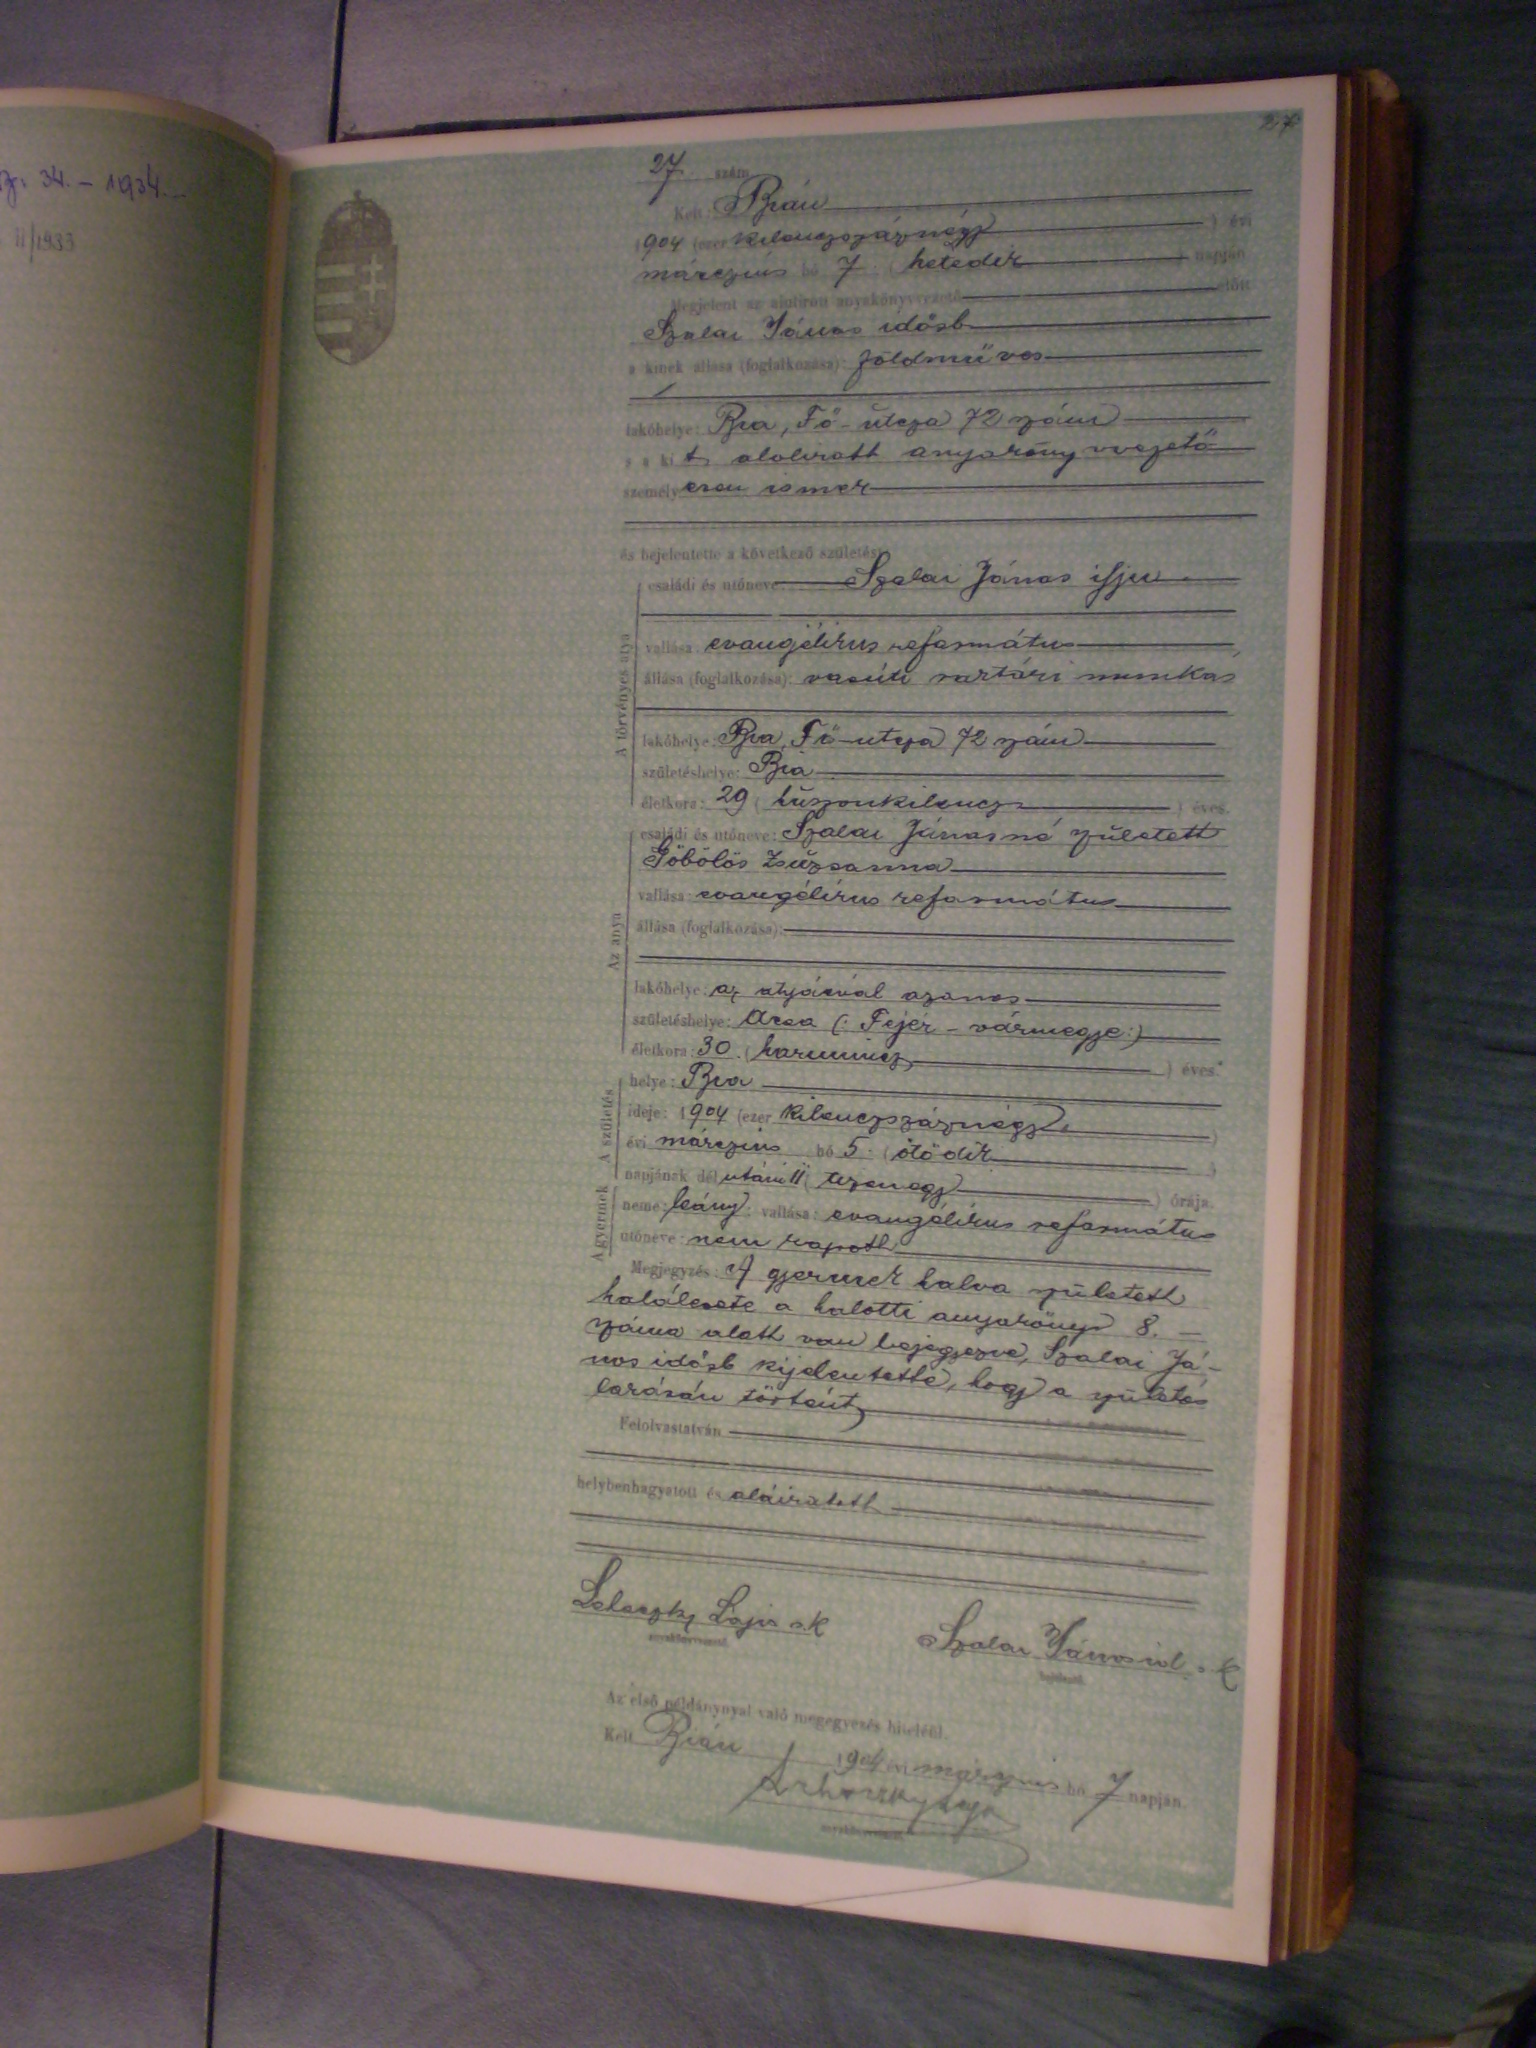 34. – 1934. –
II/1933
27
27. szám.
Kelt: Bián
1904 (ezer kilenczszáznégy) évi
márczius hó 7 (hetedik) napján
Megjelent az alulirott anyakönyvvezető előtt
Szalai János idősb
a kinek állása (foglalkozása): földmüves
lakóhelye: Bia, Fő-utcza 72 szám
s a kit alolirott anyakönyvvezető
személyesen ismer
és bejelentette a következő születést:
A törvényes atya
családi és utóneve: Szalai János ifju
vallása: evangélikus református
állása (foglalkozása): vasúti raktári munkás
lakóhelye: Bia, Fő-utcza 72 szám
születéshelye: Bia
életkora: 29 (huszonkilencz) éves.
Az anya
családi és utóneve: Szalai Jánosné született
Göbölös Zsuzsanna
vallása: evangélikus református
állása (foglalkozása):
lakóhelye: az atyáéval azonos
születéshelye: Acsa (: Fejér-vármegye:)
életkora: 30. (harmincz) éves.
A születés
helye: Bia
ideje: 1904 (ezer kilenczszáznégy)
évi márczius hó 5. (ötödik)
napjának délutáni 11 (tizenegy) órája.
A gyermek
neme: leány; vallása: evangélikus református
utóneve: nem kapott
Megjegyzés: A gyermek halva született
halálesete a halotti anyakönyv 8. –
száma alatt van bejegyezve, Szalai Já-
nos idősb kijelentette, hogy a születés
lakásán történt,
Felolvastatván
helybenhagyatott és aláiratott
Lajos sk
anyakönyvvezető.
Szalai János id. s. k.
bejelentő.
Az első példánynyal való megegyezés hiteléül.
Kelt Bián 1904 évi márczius hó 7 napján.
anyakönyvvezető.